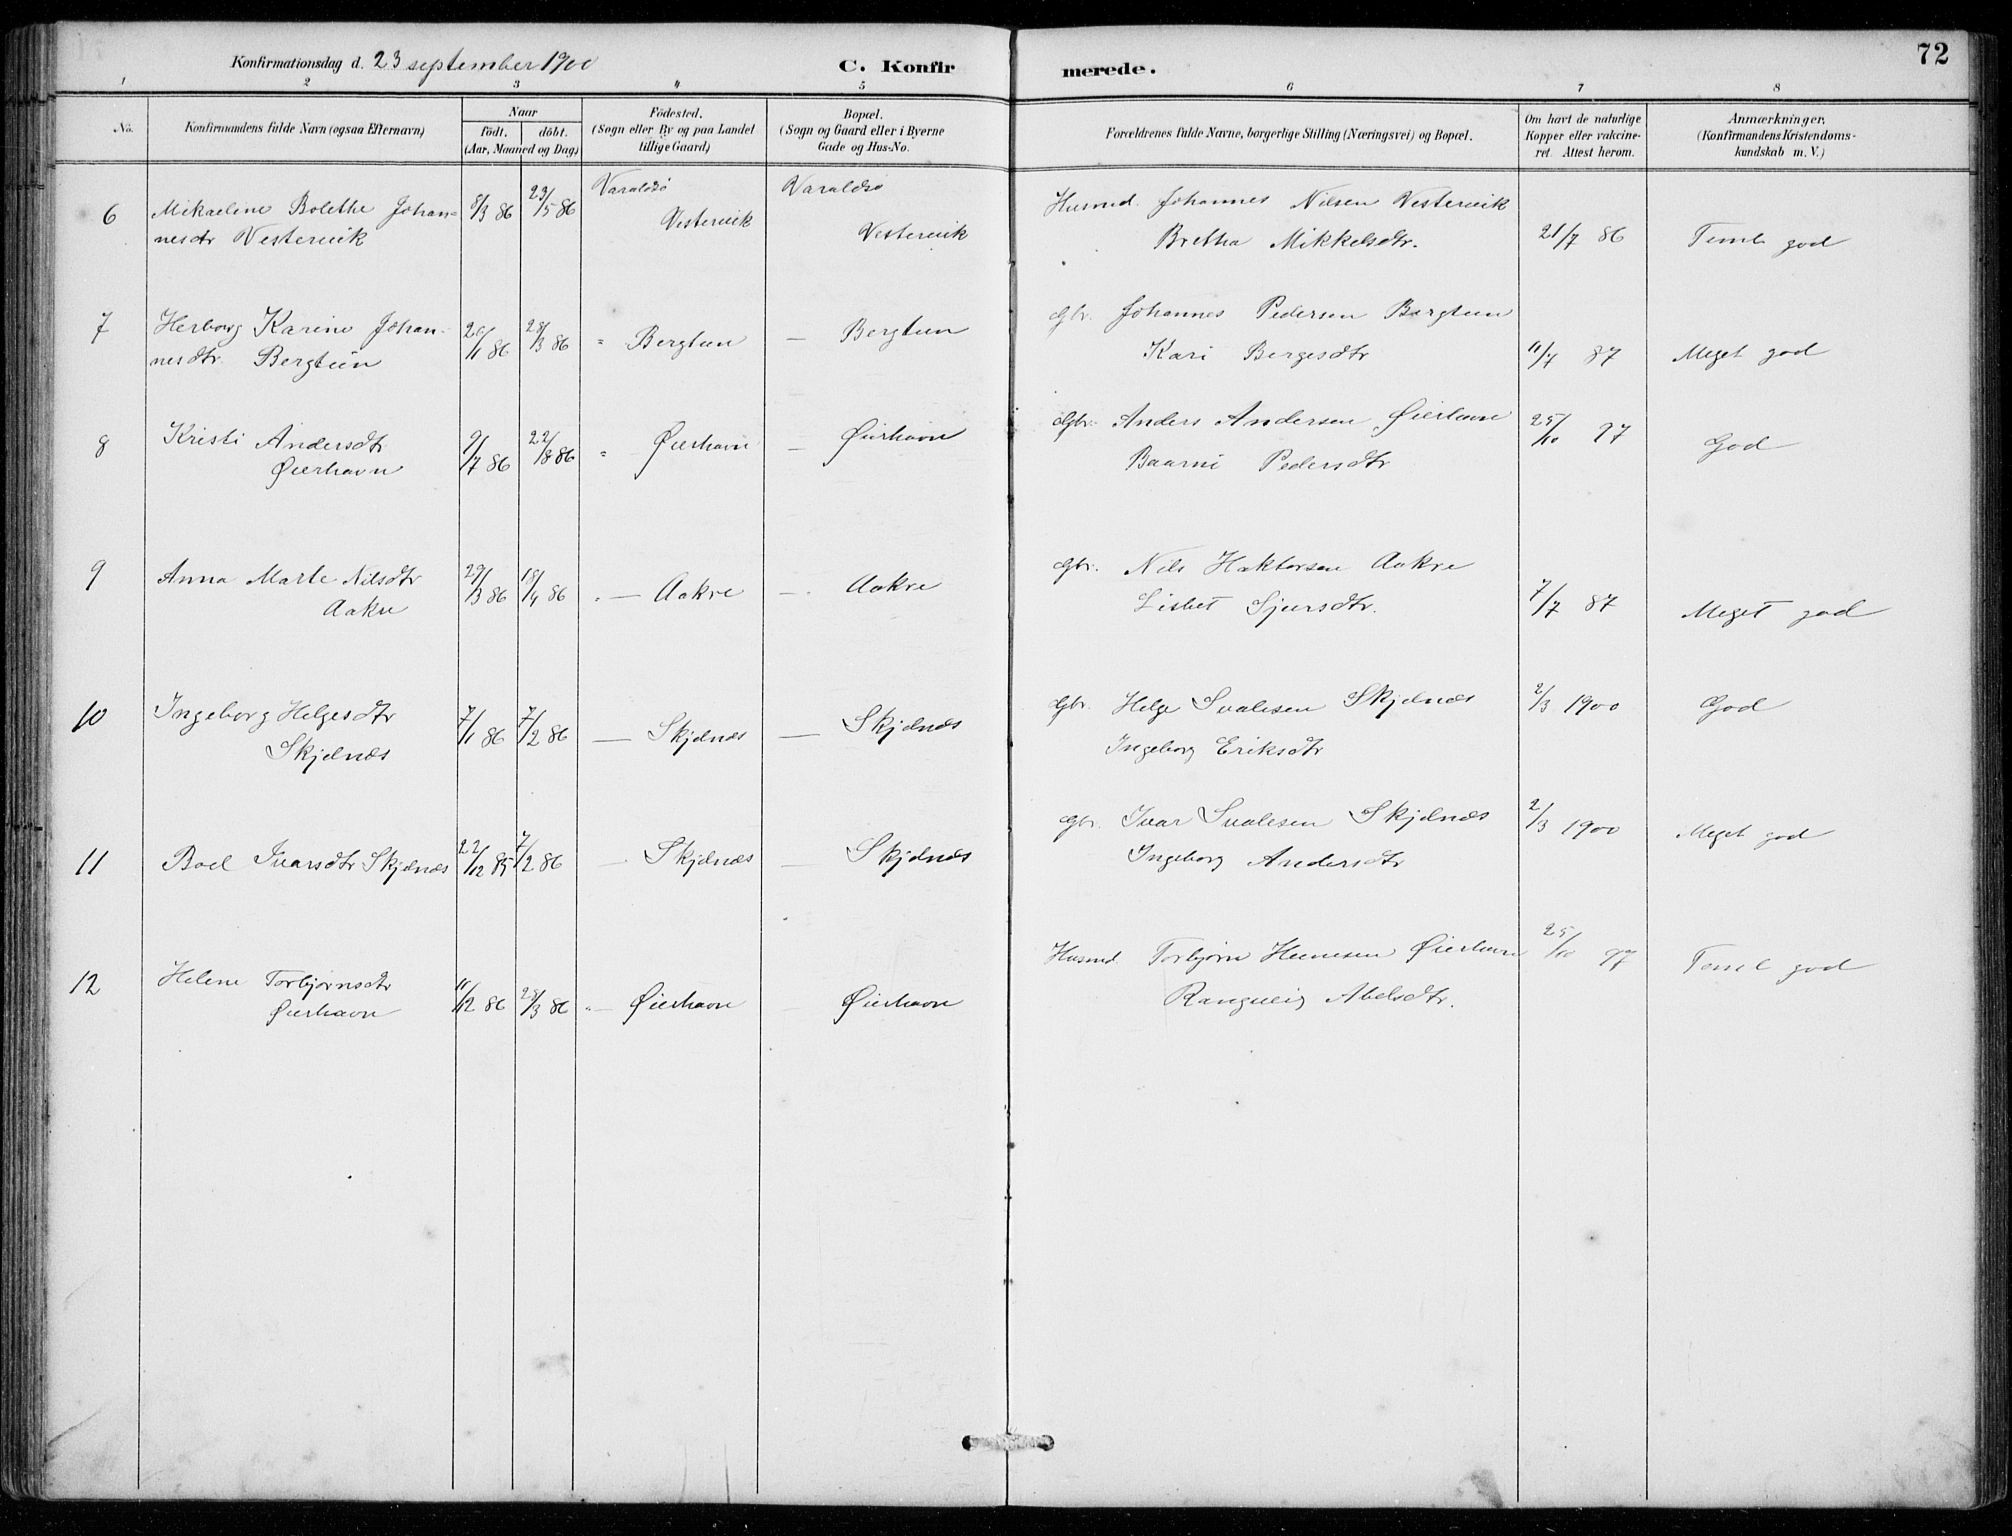 72
Konfirmationsdag d. 23 september 1900
C. Konfirmerede.
1 2 3 4 5 6 7 8
No.
Konfirmandens fulde Navn (ogsaa Efternavn)
Naar
födt. döbt.
(Aar, Maaned og Dag)
Födested.
(Sogn eller By og paa Landet
tillige Gaard)
Bopæl.
(Sogn og Gaard eller i Byerne
Gade og Hus-No.
Forældrenes fulde Navne, borgerlige Stilling (Næringsvei) og Bopæl.
Om havt de naturlige
Kopper eller vakcine-
ret. Attest herom.
Anmærkninger,
(Konfirmandens Kristendoms-
kundskab m. V.)
6 Mikaeline Bolethe Johan= 8/3 86 23/5 86 Varaldsö Varaldsö Husmd. Johannes Nilsen Vestervik
nesdtr Vestervik Vestervik Vestervik Bretha Mikkelsdtr. 21/7 86 Teml. god
7 Herborg Karine Johan- 20/1 86 28/3 86 " Bergtun — Bergtun Gbr. Johannes Pedersen Bergtun
nesdtr. Bergtun Kari Bergesdtr 11/7 87 Meget god
8 Kristi Andersdtr 9/7 86 22/8 86 " Øierhavn — Øierhavn Gbr. Anders Andersen Øierhavn 25/10 97 God
Øierhavn Pedersdtr
9 Anna Marte Nilsdtr 29/3 86 18/4 86 " — Aakre — Aakre Gbr. Nils Haktorsen Aakre
Aakre Lisbet Sjursdtr. 7/7 87 Meget god
10 Ingeborg Helgesdtr 7/1 86 7/2 86 — Skjelnæs — Skjelnæs Gbr. Helge Svalesen Skjelnæs 2/3 1900 God
Skjelnæs Ingeborg Eriksdtr
11 Boel Ivarsdtr Skjelnæs 22/12 85 7/2 86 — Skjelnæs — Skjelnæs Gbr. Ivar Svalesen Skjelnæs 2/3 1900 Meget god
Ingeborg Andersdtr
12 Helene Torbjørnsdtr 11/12 86 28/3 86 "— Øierhavn Øierhavn Husmd. Torbjørn Øierhavn 25/10 97 Teml. god
Øierhavn Rangveig Abelsdtr.